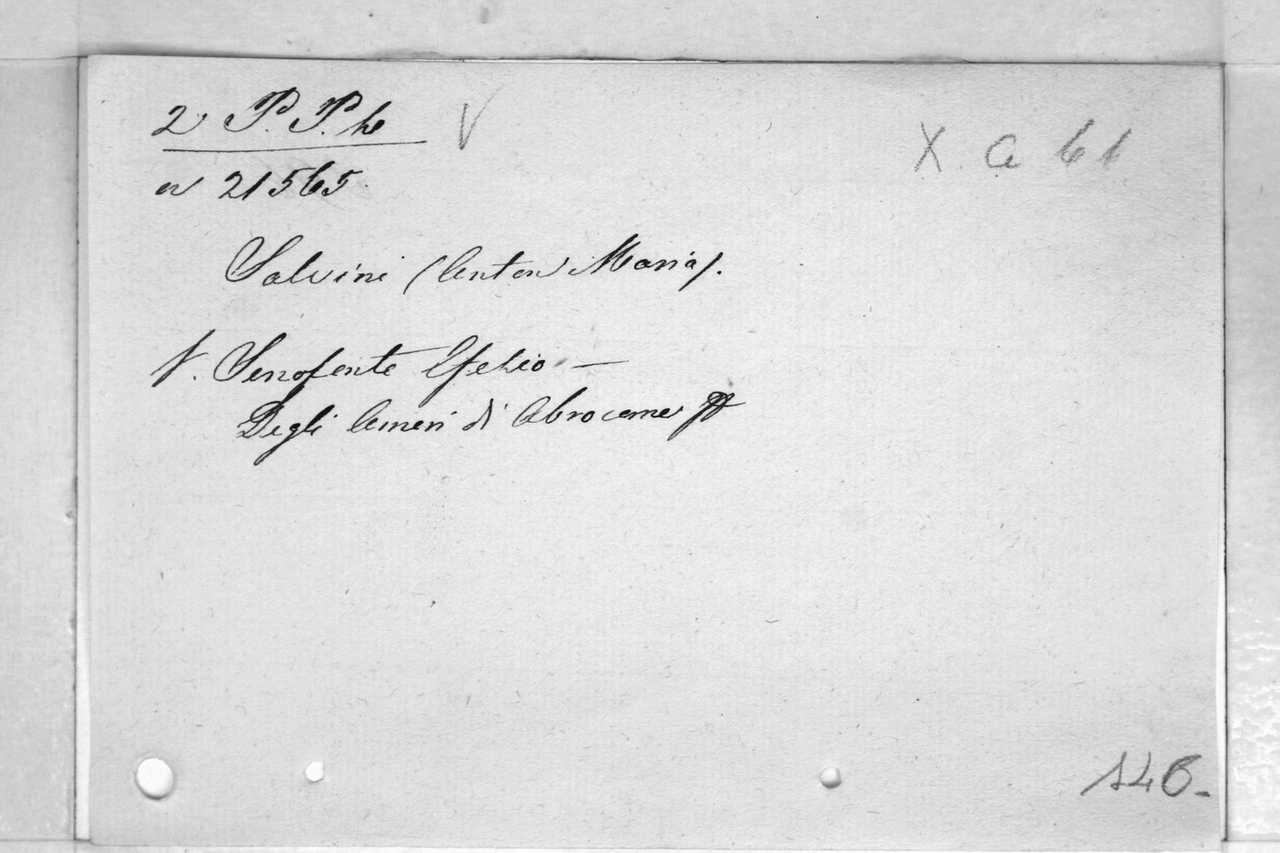 2 P. P. he V
X a 61
n 21565
Salvini (Anton Maria).
V. Senofonte Efesio —
Degli Amori di Abrocome
146.